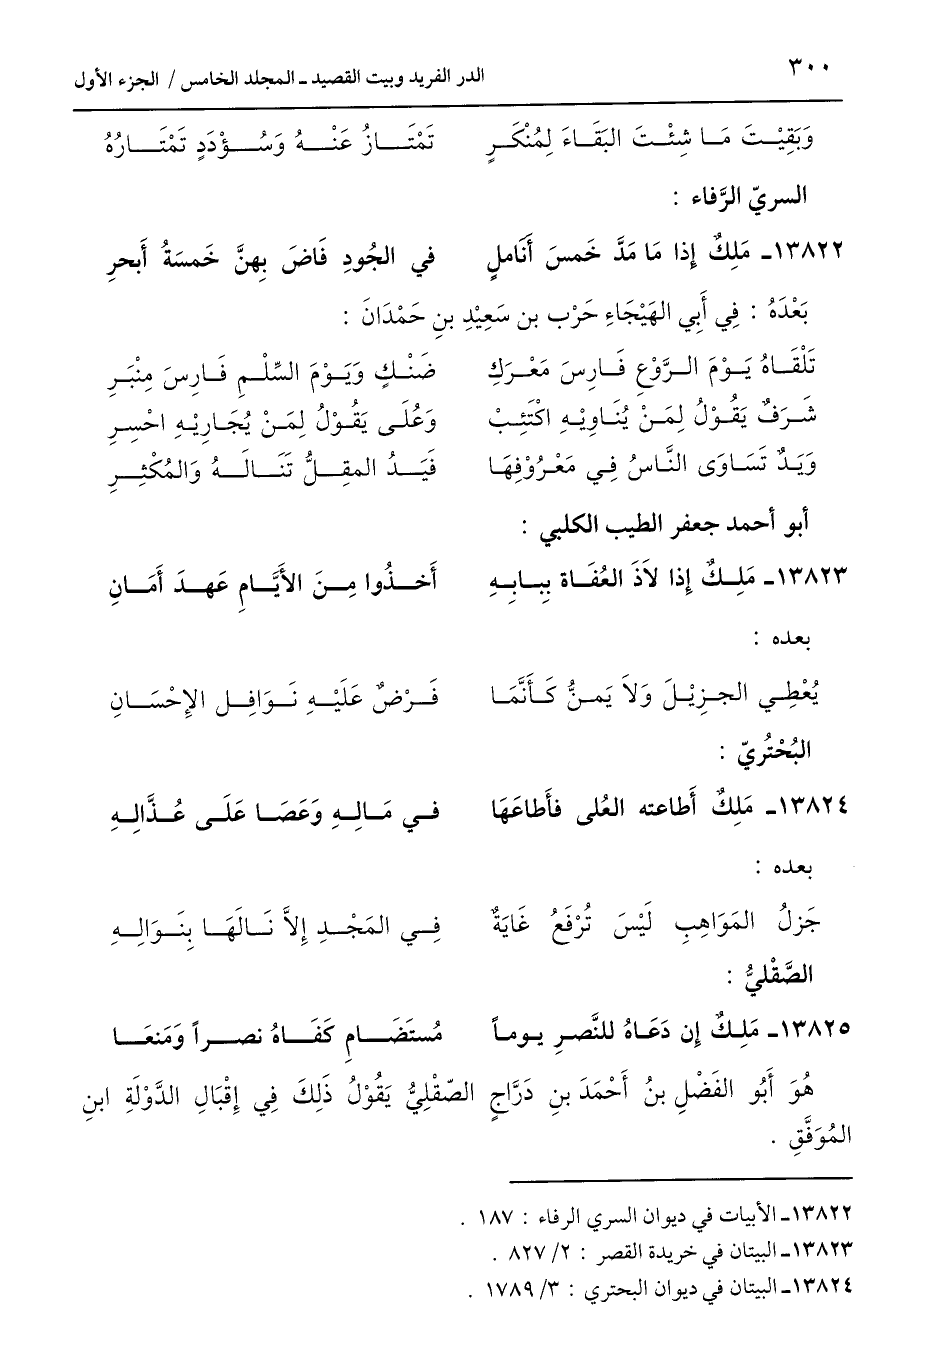 ٣٠٠
الدر الفريد وبيت القصيد ـ المجلد الخامس / الجزء الأول
وَبَقِيْتَ مَا شِئْتَ البَقَاءَ لِمُنْكَرٍ تَمْتَازُ عَنْهُ وَسُؤْدَدٍ تَمْتَارُهُ
السريّ الرَّفاء :
١٣٨٢٢ـ مَلِكٌ إذا مَا مَدَّ خَمسَ أنَاملٍ في الجُودِ فَاضَ بِهنَّ خَمسَةُ أَبحرِ
بَعْدَهُ : فِي أَبِي الهَيْجَاءِ حَرْبِ بن سَعِيْدِ بنِ حَمْدَانَ :
تَلْقَاهُ يَوْمَ الرَّوْعِ فَارِسَ مَعْرَكٍ ضَنْكٍ وَيَوْمَ السِّلْمِ فَارِسَ مِنْبَرِ
شَرَفٌ يَقُوْلُ لِمَنْ يُنَاوِيْهِ اكْتَئِبْ وَعُلَى يَقُوْلُ لِمَنْ يُجَارِيْهِ احْسِرِ
وَيَدٌ تَسَاوَى النَّاسُ فِي مَعْرُوْفِهَا فَيَدُ المقِلُّ تَنَالَهُ وَالمُكْثِرِ
أبو أحمد جعفر الطيب الكلبي :
١٣٨٢٣ـ مَلِكٌ إذا لاَذَ العُفَاة بِبَابِهِ أَخذُوا مِنَ الأيَّامِ عَهدَ أَمَانِ
بعده :
يُعْطِي الجزِيْلَ وَلاَ يَمنُّ كَأَنَّمَا فَرْضٌ عَلَيْهِ نَوَافِل الإِحْسَانِ
البُحْتُريّ :
١٣٨٢٤ـ مَلِكٌ أطاعته العُلى فأَطاعَهَا في مَالِهِ وَعَصَا عَلَى عُذَّالِهِ
بعده :
جَزلُ المَوَاهِبِ لَيْسَ تُرْفَعُ غَايَةٌ فِي المَجْدِ إلاَّ نَالَهَا بِنَوالِهِ
الصَّقْليُّ :
١٣٨٢٥ـ مَلِكٌ إن دَعَاهُ للنَّصرِ يوماً مُستَضَامٍ كَفَاهُ نصراً وَمَنعَا
هُوَ أَبُو الفَضْلِ بنُ أَحْمَدَ بنِ دَرَّاجٍ الصّقْلِيُّ يَقُوْلُ ذَلِكَ فِي إِقْبَالِ الدَّوْلَةِ ابنِ
المُوَفَّقِ .
١٣٨٢٢ـ الأبيات في ديوان السري الرفاء : ١٨٧ .
١٣٨٢٣ـ البيتان في خريدة القصر : ٢/ ٨٢٧ .
١٣٨٢٤ـ البيتان في ديوان البحتري : ٣/ ١٧٨٩ .